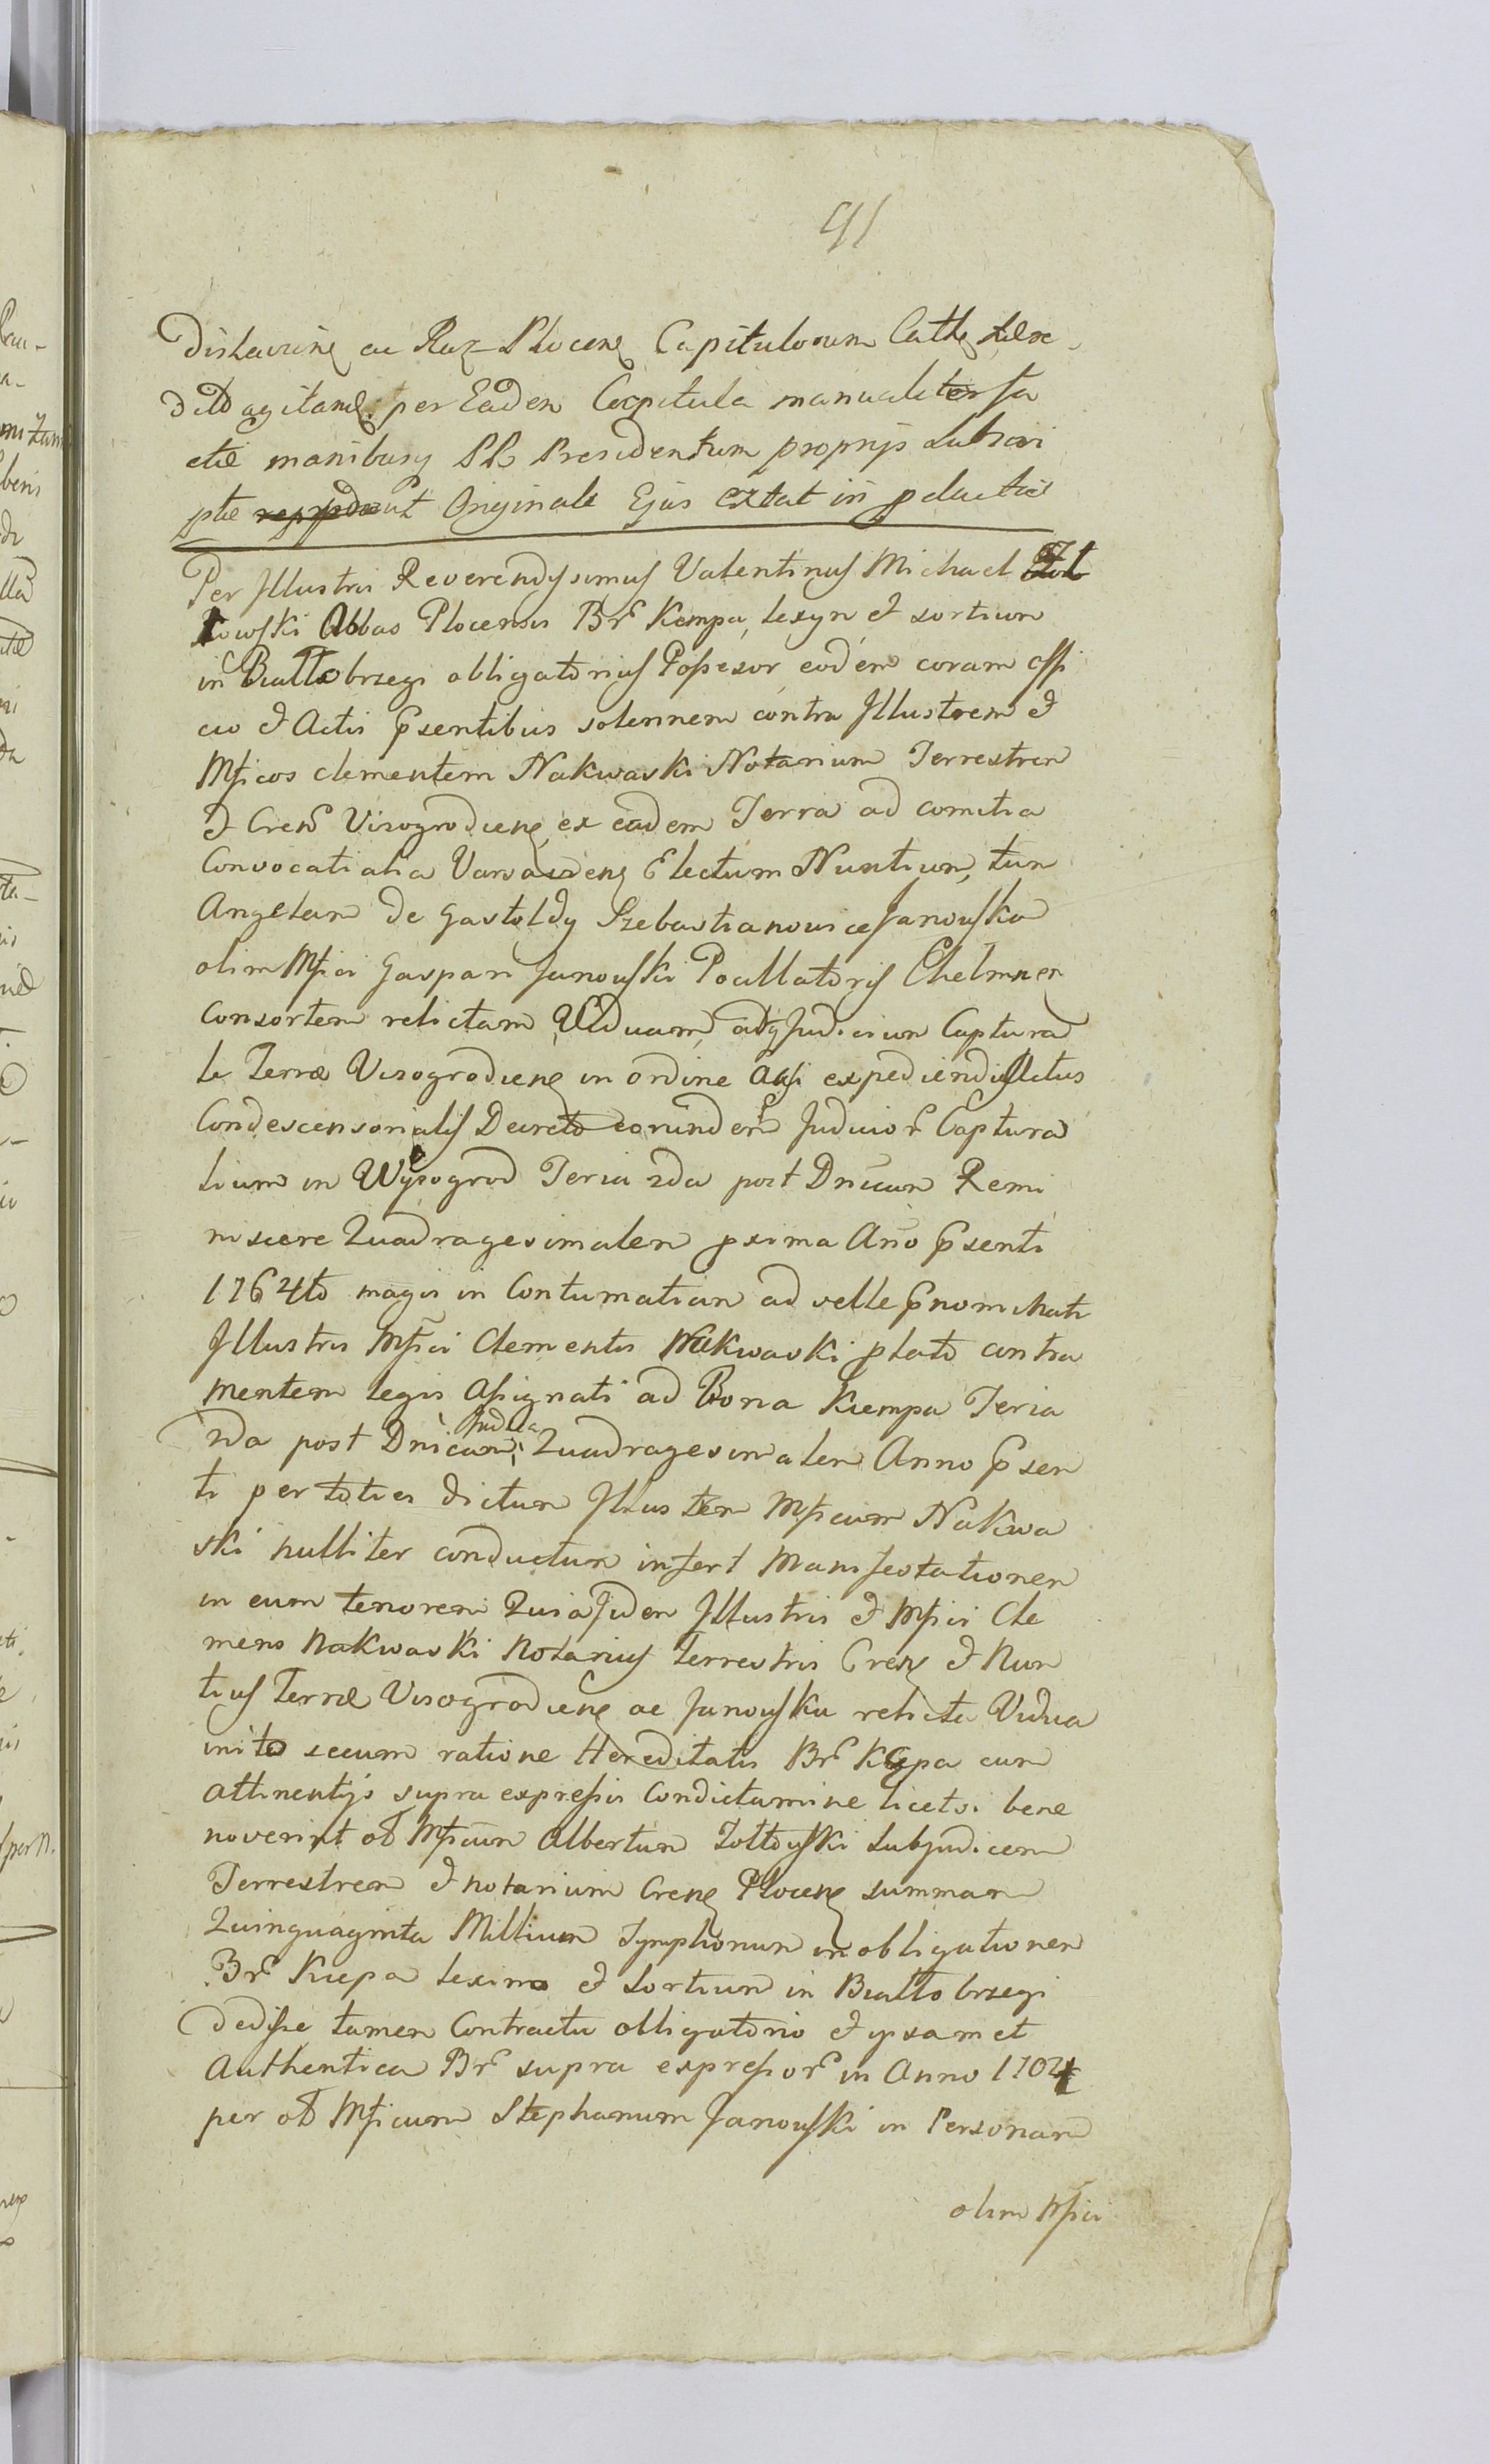 91
ac Capitulorum Cath
agitand. per Eaden Capitula manualiter fa
ctie manibusq PR Presidentum proprijs Subscri
ptie ut Originale Ejus extat in
Per Jllustris Reverendyssimus Valentinus Michael Zol
towski Abbas Plocensis Br Kempa, Lesyn et sortium
in Biallobrzegi obligatorius Possesor eodem coram offi
cio et Actis Psentibus solennem contra Jllustrem et
Mficos clementem Nakwaski Notarium Terrestren
et Cren Visogrodienę ex eadem Terra ad comitia
Convocatialia Varsavienę Electum Nuntium, tum
Angelam de Gastoldy Szebastianowice Janowska
olim Mfici Gaspari Janowski Pocillatoris Chelmnen
Consortem relictam Viduam, adq Judicium Captura
le Terræ Visogrodienę in ordine expediendi Actus
Condescensorialis Decreto eorunden Judicior Captura
lium in Wyszogrod Feria 2da post Dnicam Remi
niscere Quadragesimalem pxima Ano Psenti
1764to magis in Contumatiam ad velle Pnominati
Jllustris Mfici Clementis Nakwaski plato contra
mentem legis Assignati ad Bona Kiempa Feria
2da post Dnicam Judica Quadragesimalem Anno Psen
ti per toties dictum Jllustrem Mficum Nakwa
ski nulliter conductum infert Manifestationem
in eum tenorem Quia Jidem Jllustris et Mfici Cle
mens Nakwaski Notarius terrestris Crenę et Nun
tius Terræ Visogrodienę ac Janowska relicta Vidua
inito secum ratione Hereditatis Br Kępa cum
attinentijs supra expressis Condictamine licet si bene
noverint ol Mficum Albertum Zoltowski Subjudicem
Terrestrem et notarium Crenę Plocenę summam
Quinquaginta Millium Tymphonum in obligationem
Br Kiepa Lesino et Sortium in Biallobrzegi
dedisse tamen Contractu obligatorio et ipsamet
Authentica Br supra expressor in Anno 1704
per ol Mficum Stephanum Janowski in Personam
olim Mfici